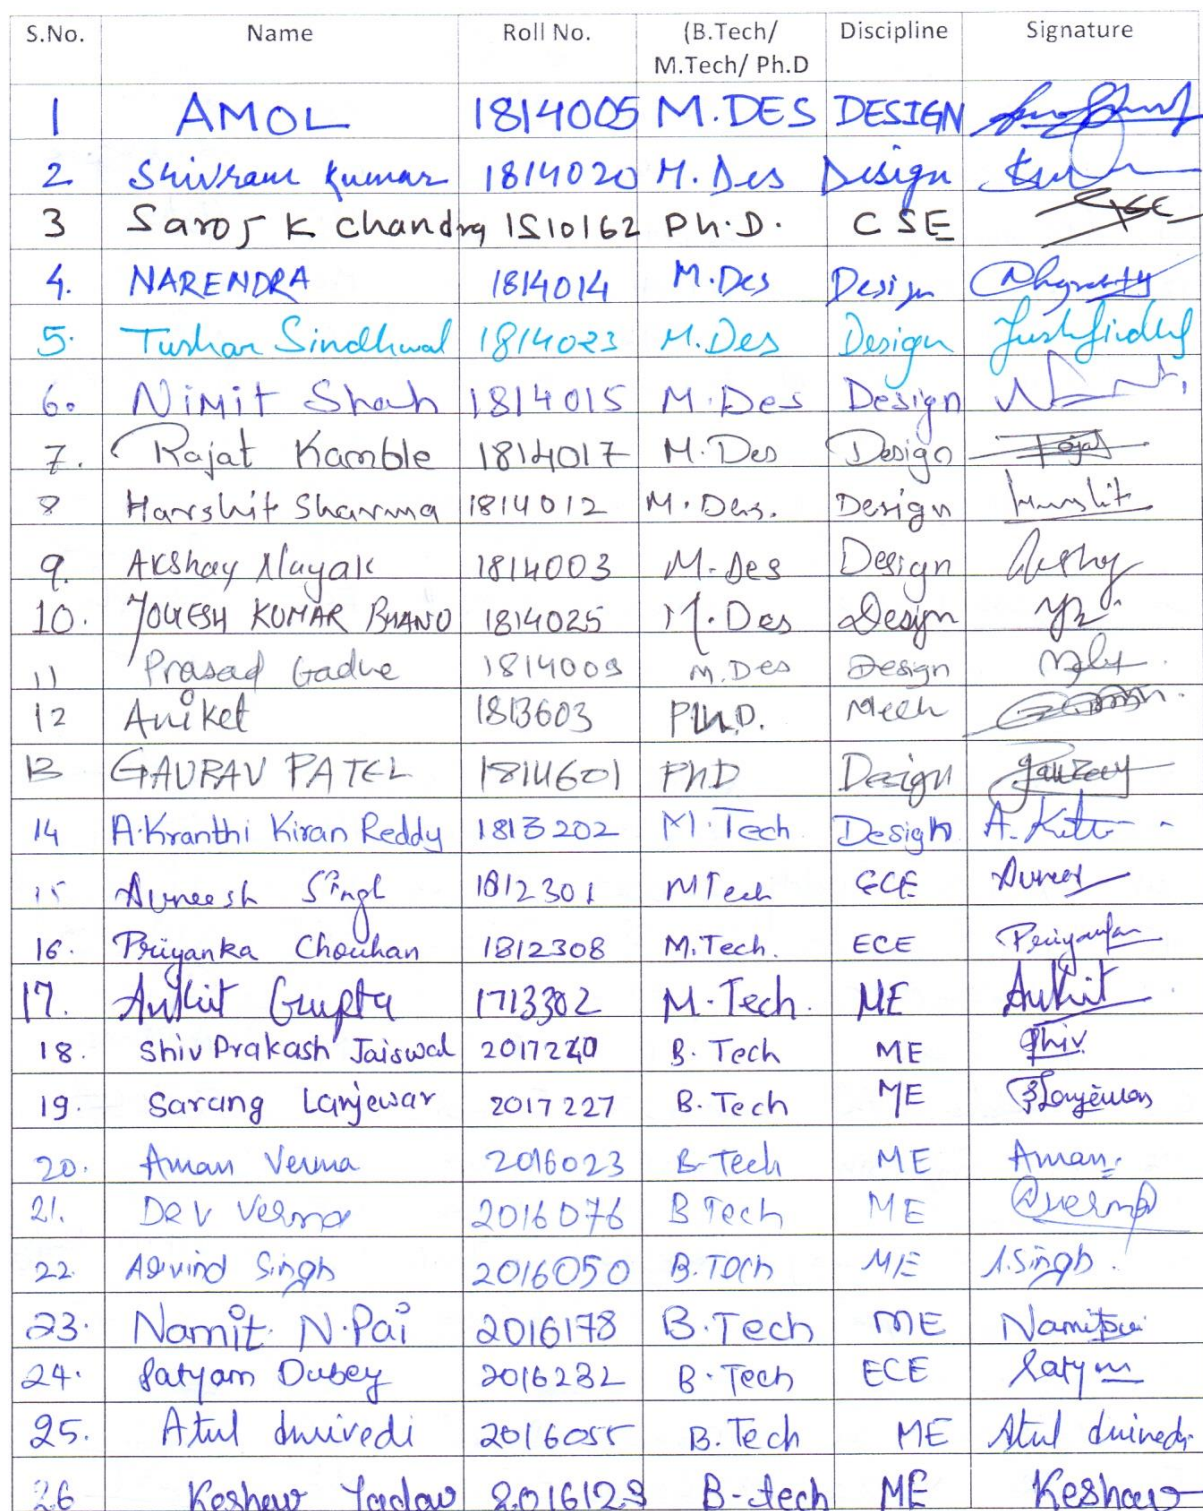 S.No. Name Roll No. (B.Tech/ M.Tech/ Ph.D Discipline Signature
1 AMOL 1814005 M.DES DESIGN
2 Shivram Kumar 1814020 M. Des Design
3 Saroj K Chandra 1510162 Ph.D. CSE
4. NARENDRA 1814014 M.Des Design
5. Tushar Sindhwal 1814023 M.Des Design
6. Nimit Shah 1814015 M.Des Design
7. Rajat Kamble 1814017 M.Des Design Rajat
8 Harshit Sharma 1814012 M.Des. Design Harshit
9. Akshay Nayak 1814003 M.Des Design Akshay
10. YOGESH KUMAR 1814025 M.Des Design
11 Prasad Gadhe 1814009 M.Des Design
12 Aniket 1813603 Ph.D. Mech
13 GAURAV PATEL 1814601 PhD Design
14 A.Kranthi Kiran Reddy 1813202 M.Tech Design
15 Avneesh Singh 1812301 MTech ECE
16. Priyanka Chouhan 1812308 M.Tech. ECE Priyanka
17. Ankit Gupta 1713302 M-Tech. ME Ankit
18. Shiv Prakash Jaiswal 2017240 B. Tech ME Shiv
19. Sarang Lanjewar 2017227 B. Tech ME SLanjewar
20. Aman Verma 2016023 B-Tech ME Aman.
21. Dev Verma 2016076 B Tech ME DVerma
22. Arvind Singh 2016050 B.Tech ME A.Singh.
23. Namit N.Pai 2016178 B.Tech ME
24. Satyam Dubey 2016232 B.Tech ECE Satyam
25. Atul dwivedi 2016055 B.Tech ME Atul dwivedi
26 Keshew Yadav 2016129 B-tech ME Keshew